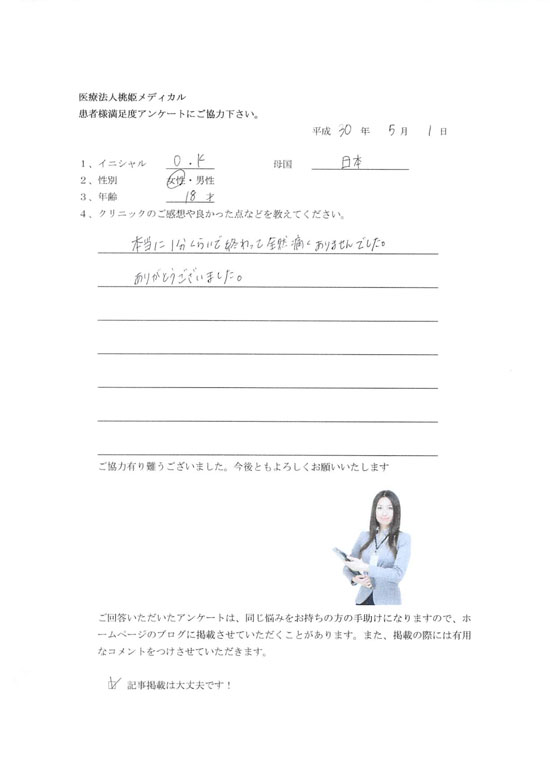 医療法人桃姫メディカル
患者様満足度アンケートにご協力下さい。
平成 30 年 5 月 1 日
1、イニシャル O.K 母国 日本
2、性別 女性・男性
3、年齢 18才
4、クリニックのご感想や良かった点などを教えてください。
本当に1分くらいで終わって全然痛くありませんでした。
ありがとうございました。
ご協力有り難うございました。今後ともよろしくお願いいたします
ご回答いただいたアンケートは、同じ悩みをお持ちの方の手助けになりますので、ホ
ームページのブログに掲載させていただくことがあります。また、掲載の際には有用
なコメントをつけさせていただきます。
記事掲載は大丈夫です！